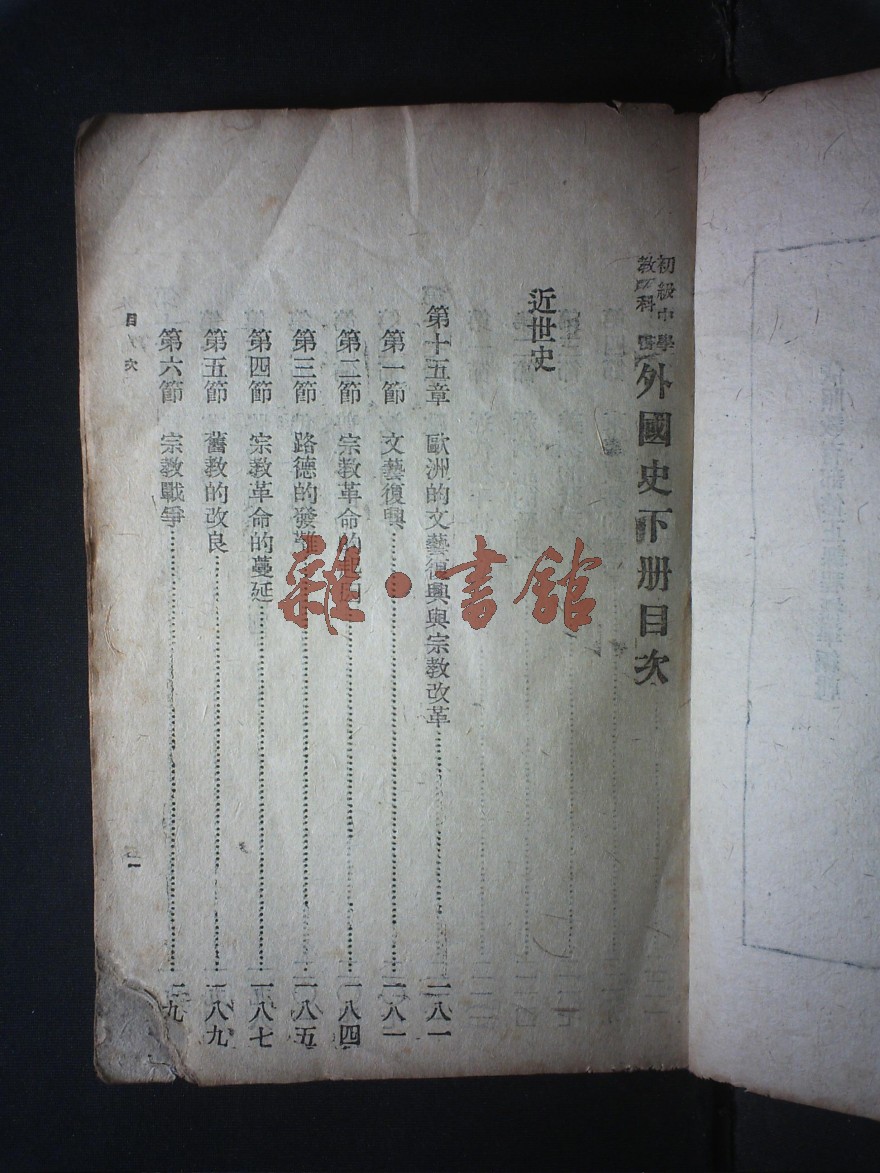 初級中學
教科書
外國史下册目次
近世史
第十五章 歐洲的文藝復興與宗教改革 一八一
第一節 文藝復興 一八一
第二節 宗教革命的起因 一八四
第三節 路德的發難 一八五
第四節 宗教革命的蔓延 一八七
第五節 舊教的改良 一八九
第六節 宗教戰爭 一九
目次
一
雜·書館